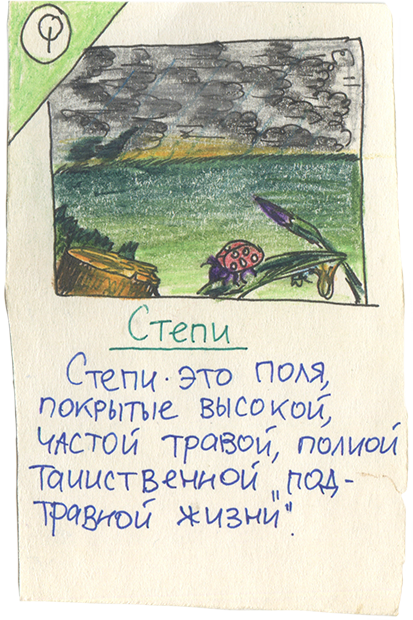 Степи
Степи - это поля,
покрытые высокой,
частой травой, полной
таинственной "под-
травной жизни".